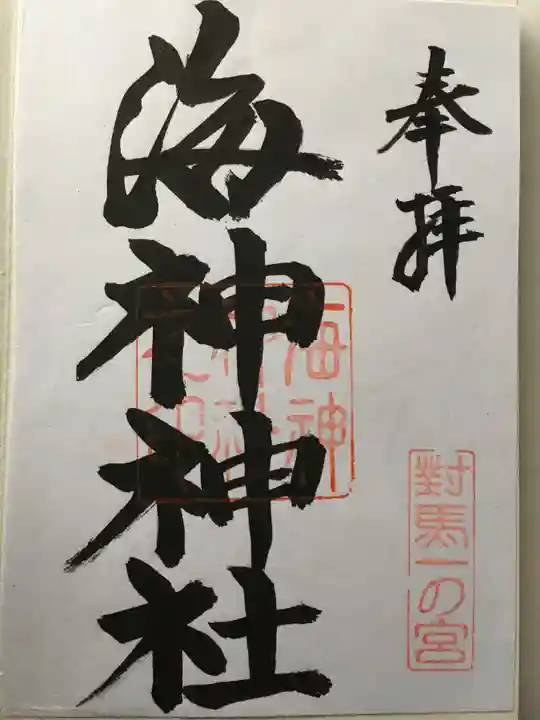 奉拝
海神神社
海神
神社
之印
對馬一の宮